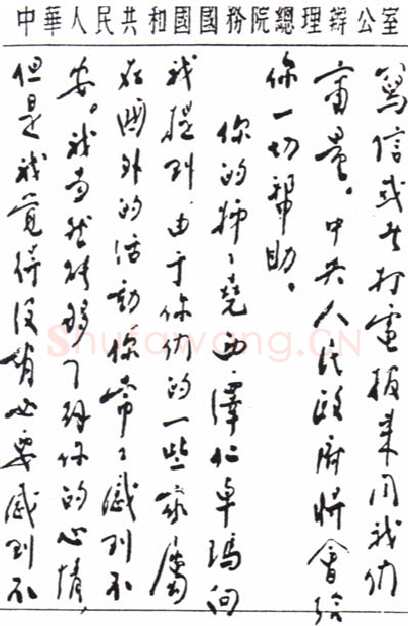 中華人民共和國國務院總理辦公室
寫信或者打電报来同我们
商量。中央人民政府將會给
你一切幫助。
你的姊〻堯西·澤仁卓瑪向
我提到,由于你们的一些家屬
在國外的活動,你常〻感到不
安。我当然能够了解你的心情,
但是我覚得没有必要感到不
Shufawang.CN